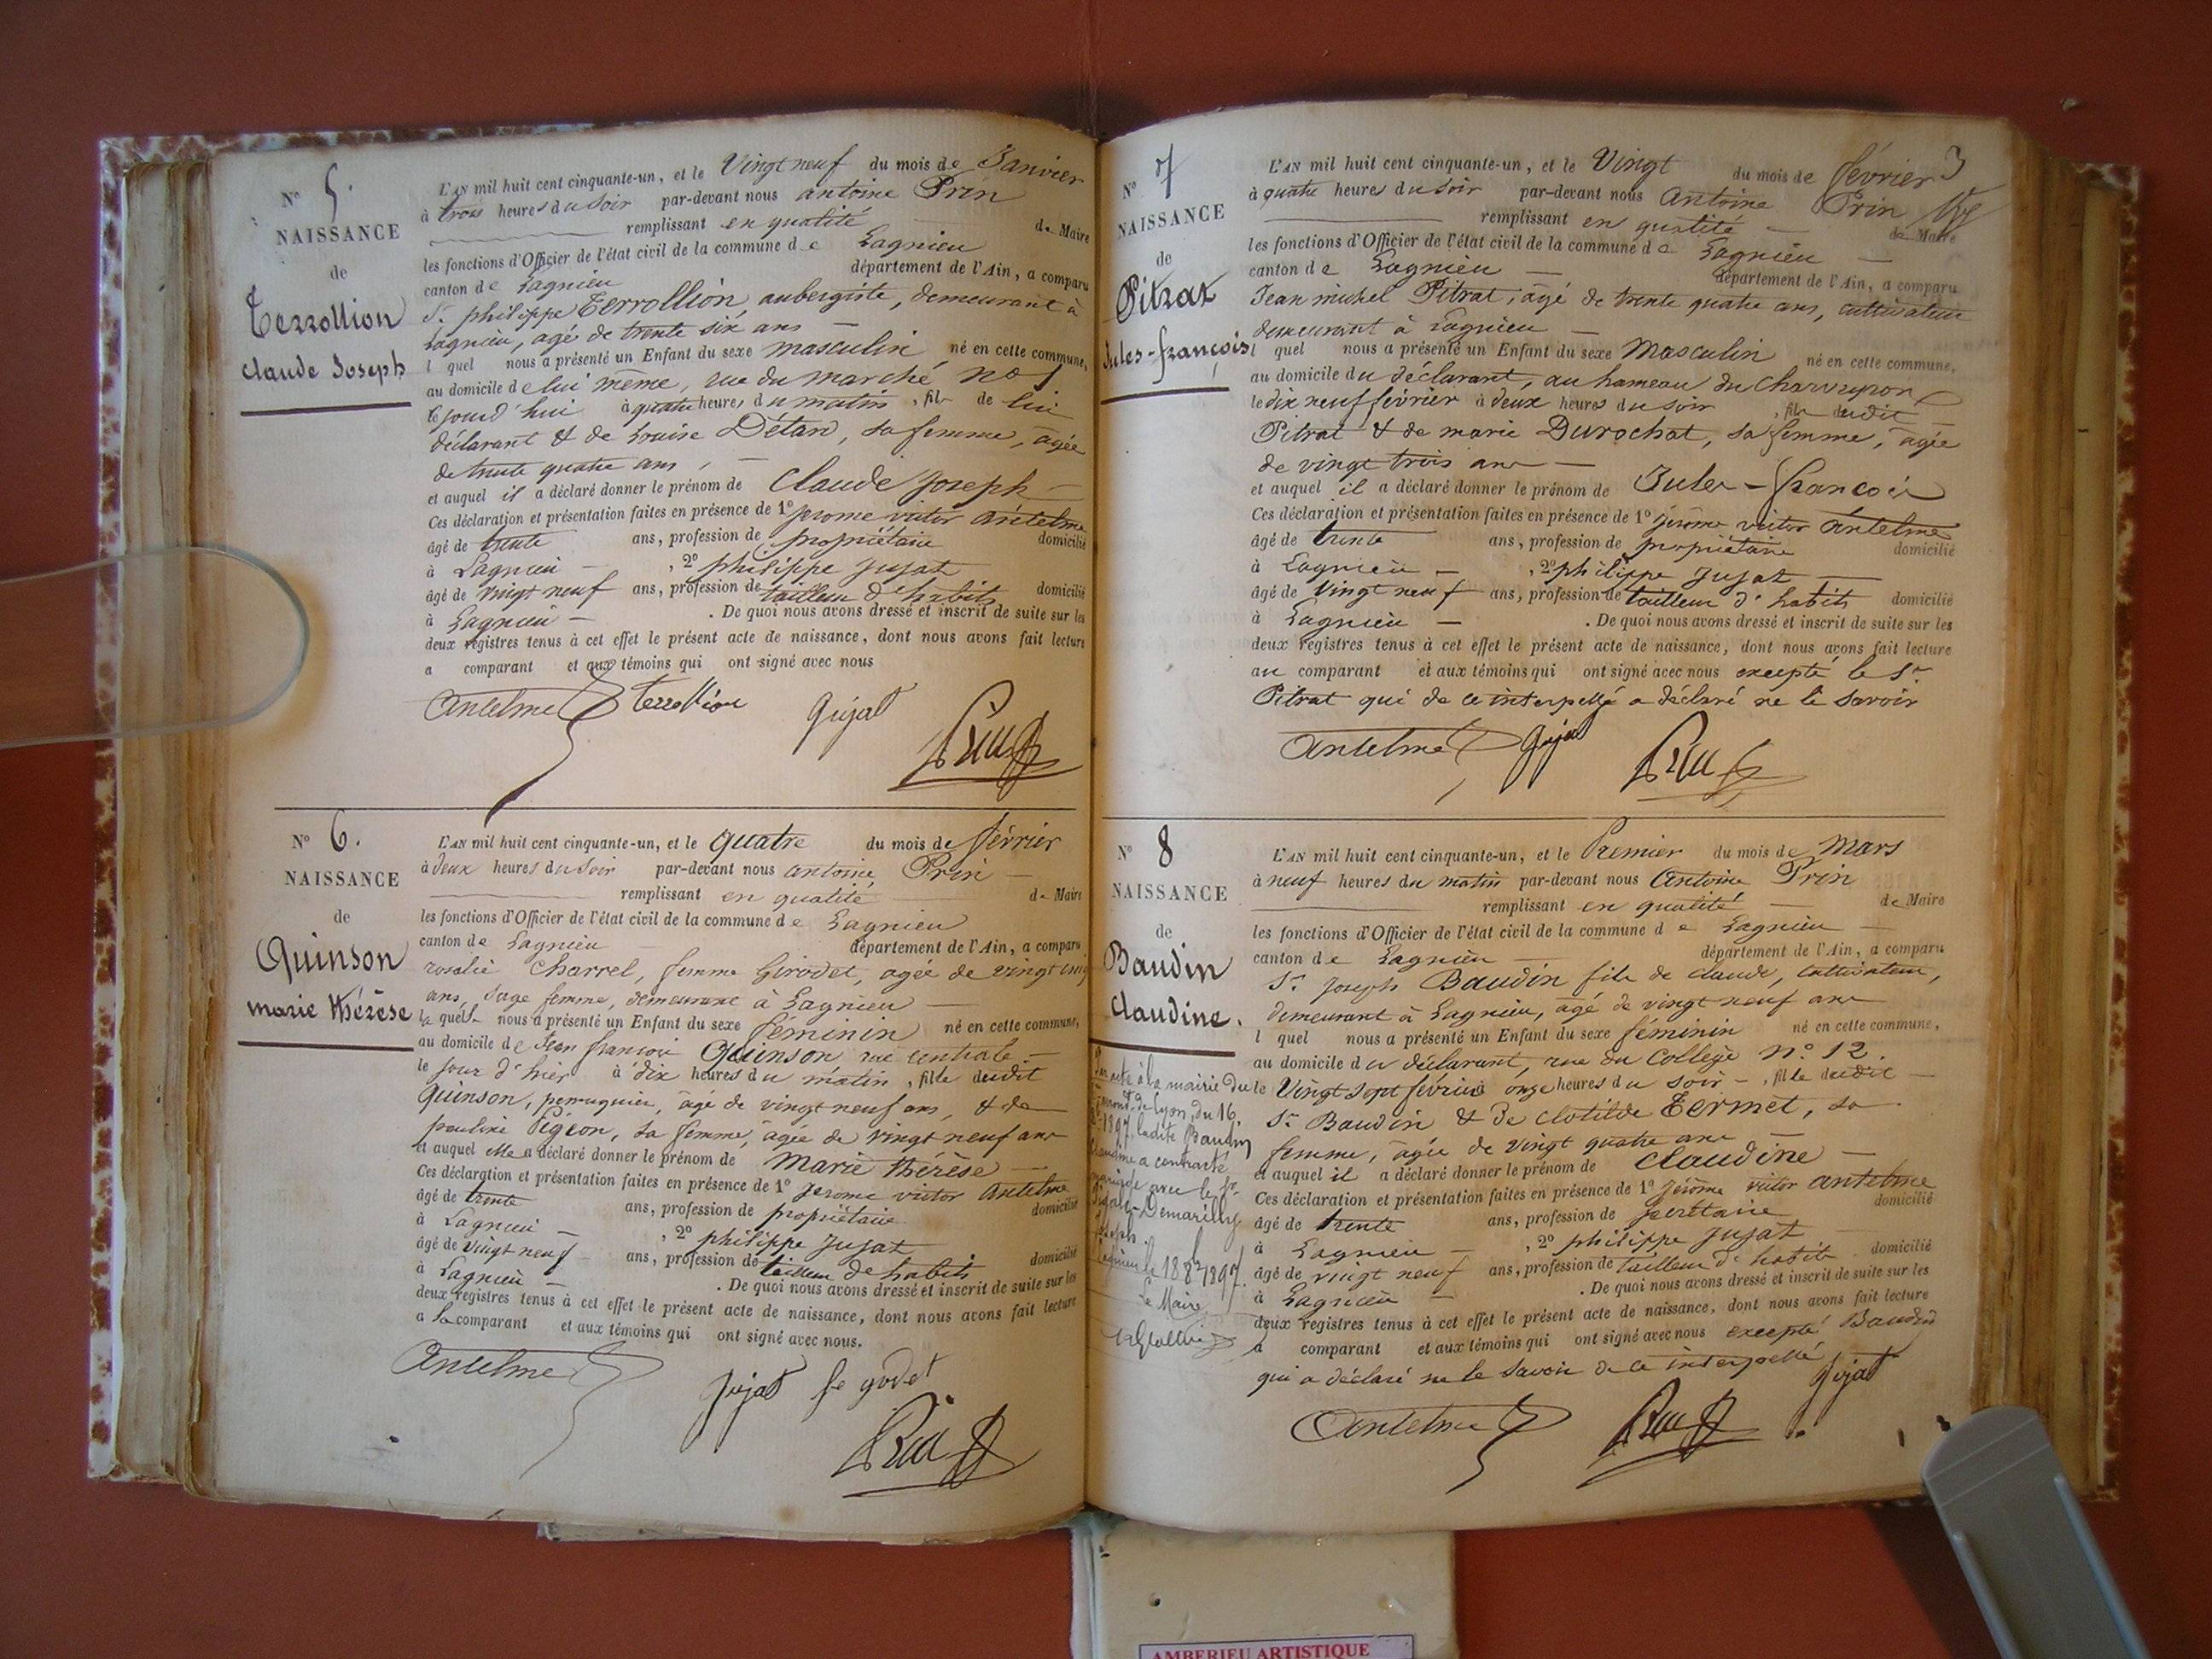 N° 5.
NAISSANCE
de
Terrollion
Claude Joseph
L'AN mil huit cent cinquante-un, et le Vingt neuf du mois de Janvier
à trois heures du soir par-devant nous antoine Prin
remplissant en qualité de Maire
les fonctions d'Officier de l'état civil de la commune de Lagnieu
canton de Lagnieu département de l'Ain, a comparu
Sr. philippe Terrollion, aubergiste, demeurant à
Lagnieu, agé de trente six ans
l quel nous a présenté un Enfant du sexe masculin né en cette commune,
au domicile de lui même, rue du marché no 1
le jourd'hui à quatre heures du matin, fils de lui
déclarant & de Louise Détard, sa femme, agée
de trente quatre ans,
et auquel il a déclaré donner le prénom de Claude Joseph
Ces déclaration et présentation faites en présence de 1° Jerome victor antelme
âgé de trente ans, profession de propriétaire domicilié
à Lagnieu, 2° philippe Jujat
âgé de vingt neuf ans, profession de tailleur d'habits domicilié
à Lagnieu. De quoi nous avons dressé et inscrit de suite sur les
deux registres tenus à cet effet le présent acte de naissance, dont nous avons fait lecture
a comparant et aux témoins qui ont signé avec nous
Antelme Terrollion Jujat
Prin
N° 6.
NAISSANCE
de
Quinson
marie thérèse
L'AN mil huit cent cinquante-un, et le quatre du mois de février
à deux heures du soir par-devant nous antoine Prin
remplissant en qualité de Maire
les fonctions d'Officier de l'état civil de la commune de Lagnieu
canton de Lagnieu département de l'Ain, a comparu
rosalie Charrel, femme Girodet, agée de vingt cinq
ans, sage femme, demeurant à Lagnieu
la quelle nous a présenté un Enfant du sexe féminin né en cette commune,
au domicile de Jean françois Quinson rue centrale
le jour d'hier à dix heures du matin, fille dudit
Quinson, perruquier, agé de vingt neuf ans, & de
pauline Pigeon, sa femme, âgée de vingt neuf ans
et auquel elle a déclaré donner le prénom de Marie thérèse
Ces déclaration et présentation faites en présence de 1° Jerome victor Antelme
âgé de trente ans, profession de propriétaire domicilié
à Lagnieu, 2° philippe Jujat
âgé de vingt neuf ans, profession de tailleur d'habits domicilié
à Lagnieu. De quoi nous avons dressé et inscrit de suite sur les
deux registres tenus à cet effet le présent acte de naissance, dont nous avons fait lecture
a la comparant et aux témoins qui ont signé avec nous.
Antelme
Jujat
Prin
3
N° 7
NAISSANCE
de
Pitrat
Jules-françois
L'AN mil huit cent cinquante-un, et le Vingt du mois de février
à quatre heures du soir par-devant nous Antoine Prin
remplissant en qualité de Maire
les fonctions d'Officier de l'état civil de la commune de Lagnieu
canton de Lagnieu département de l'Ain, a comparu
Jean michel Pitrat, âgé de trente quatre ans, cultivateur
demeurant à Lagnieu
l quel nous a présenté un Enfant du sexe Masculin né en cette commune,
au domicile du déclarant, au hameau du
le dix neuf février à deux heures du soir, fils dudit
Pitrat & de marie Durochat, sa femme, âgée
de vingt trois ans
et auquel il a déclaré donner le prénom de Jules-françois
Ces déclaration et présentation faites en présence de 1° Jérôme victor Antelme
âgé de trente ans, profession de propriétaire domicilié
à Lagnieu, 2° philippe Jujat
âgé de vingt neuf ans, profession de tailleur d'habits domicilié
à Lagnieu. De quoi nous avons dressé et inscrit de suite sur les
deux registres tenus à cet effet le présent acte de naissance, dont nous avons fait lecture
au comparant et aux témoins qui ont signé avec nous excepté le Sr
Pitrat qui de ce interpellé a déclaré ne le savoir
Antelme Jujat
Prin
N° 8
NAISSANCE
de
Baudin
Claudine.
acte à la mairie du
de Lyon, du 16
1897, ladite Baudin
Claudine a contracté
mariage avec le sr.
Demarilly
Joseph.
Lagnieu le 18 8bre 1897.
Le Maire
L'AN mil huit cent cinquante-un, et le Premier du mois de Mars
à neuf heures du matin par-devant nous Antoine Prin
remplissant en qualité de Maire
les fonctions d'Officier de l'état civil de la commune de Lagnieu
canton de Lagnieu département de l'Ain, a comparu
Sr. Joseph Baudin fils de claude, cultivateur,
demeurant à Lagnieu, âgé de vingt neuf ans
l quel nous a présenté un Enfant du sexe féminin né en cette commune,
au domicile du déclarant, rue du College n° 12.
le Vingt sept février à onze heures du soir, fille dudit
Sr. Baudin & de Clotilde Termet, sa
femme, âgée de vingt quatre ans
et auquel il a déclaré donner le prénom de claudine
Ces déclaration et présentation faites en présence de 1° Jérôme victor antelme
âgé de trente ans, profession de secrétaire domicilié
à Lagnieu, 2° philippe Jujat
âgé de vingt neuf ans, profession de tailleur d'habits domicilié
à Lagnieu. De quoi nous avons dressé et inscrit de suite sur les
deux registres tenus à cet effet le présent acte de naissance, dont nous avons fait lecture
a comparant et aux témoins qui ont signé avec nous excepté Baudin
qui a déclaré ne le savoir de ce interpellé
Jujat
Antelme Prin
AMBERIEU ARTISTIQUE